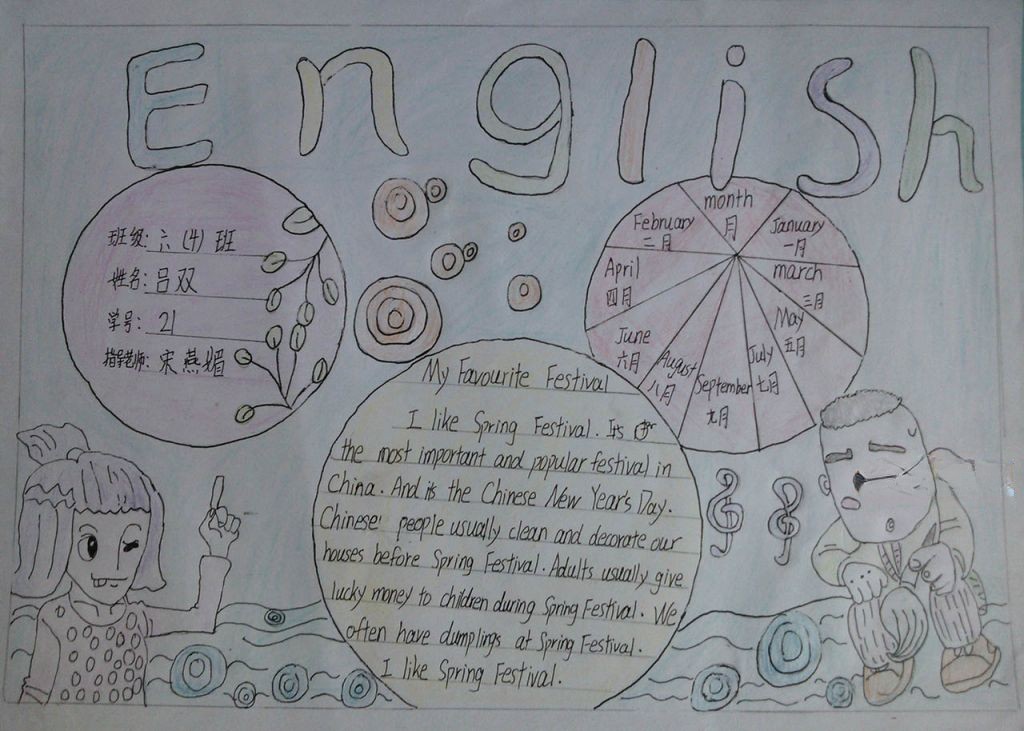 English
班级: 六 (4) 班
姓名: 吕双
学号: 21
指导老师: 宋燕媚
month
月
January
一月
February
二月
march
三月
April
四月
May
五月
June
六月
July
七月
August
八月
September
九月
My Favourite Festival
I like Spring Festival. Its
the most important and popular festival in
China. And it's the Chinese New Year's Day.
Chinese' people usually clean and decorate our
houses before Spring Festival. Adults usually give
lucky money to children during Spring Festival. We
often have dumplings at Spring Festival.
I like Spring Festival.